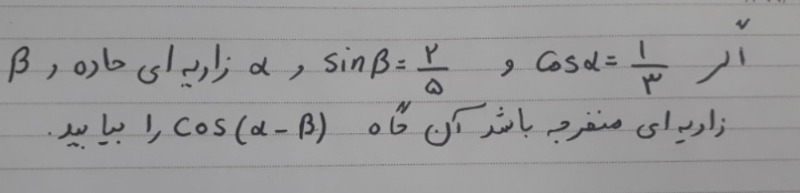 اگر cosα = ۱/۳ و sinβ = ۲/۵ و α زاویه ای حاده و β
زاویه ای منفرجه باشد آن گاه cos(α - β) را بیابید.